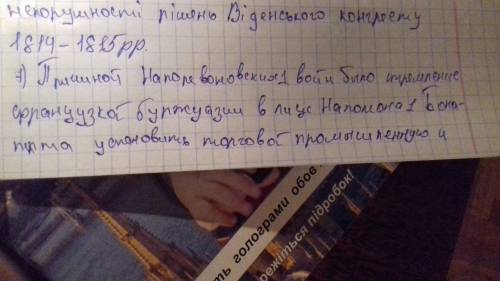 непорушності рішень Віденського конгресу
1814-1815рр.
1) Причиной Наполеоновских войн было стремление
французкой буржуазии в лице Наполеона 1 Бона-
парта установить торговой промышленную и
ть голограми обов
режіться підробок!